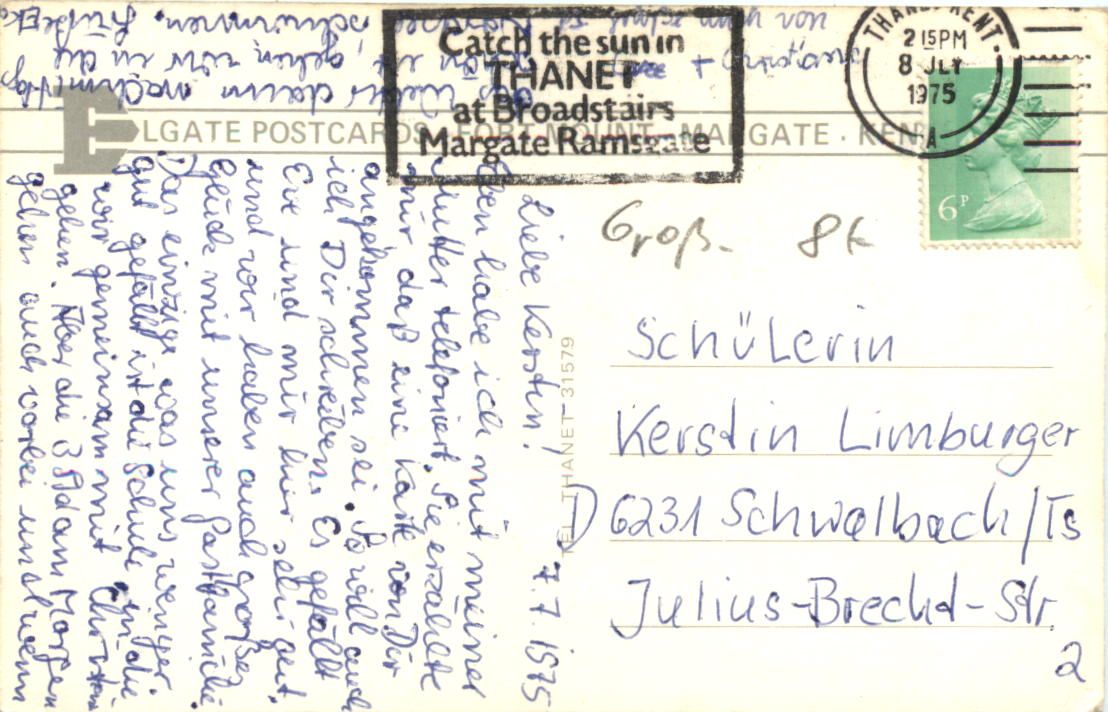 Catch the sun in
THANET
at Broadstairs
Margate Ramsgate
THANET KENT
2 15PM
8 JLY
1975
A
6P
ELGATE POSTCARDS · FORT MOUNT · MARGATE · KENT
TEL THANET 31579
Groß- 8
Schülerin
Kerstin Limburger
D 6231 Schwalbach/Ts
Julius-Brecht-Str.
2
7.7.1975
Liebe Kerstin!
habe ich mit meiner
Mutter telefoniert. Sie erzählte
mir daß eine Karte von Dir
angekommen sei. So will auch
ich Dir schreiben. Es gefällt
Eve und mir hier sehr gut,
und wir haben auch großes
Glück mit unserer Gastfamilie.
Das einzige was uns weniger
gut gefällt ist die Schule in die
wir gemeinsam mit Christian
gehen. Aber die 3 Std am Morgen
gehen auch vorbei und wenn
das Wetter dann nachmittags
schön ist, gehen wir in die
schwimmen.
Es grüße auch von
+ Christiane